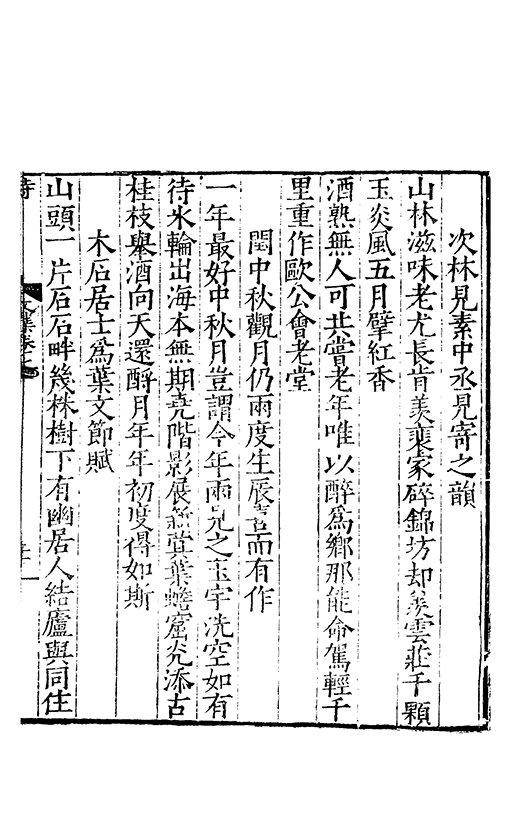 次林見素中丞見寄之韻
山林滋味老尤長肯羨裴家碎錦坊却羨雲莊千顆
玉炎風五月擘紅香
酒熟無人可共嘗老年唯以醉爲鄉那能命駕輕千
里重作歐公會老堂
閏中秋觀月仍兩度生辰喜而有作
一年最好中秋月豈謂今年兩見之玉宇洗空如有
待氷輪出海本無期堯階影展新蓂葉蟾窟光添古
桂枝舉酒向天還酹月年年初度得如斯
木石居士爲葉文節賦
山頭一片石石畔幾株樹下有幽居人結廬與同住